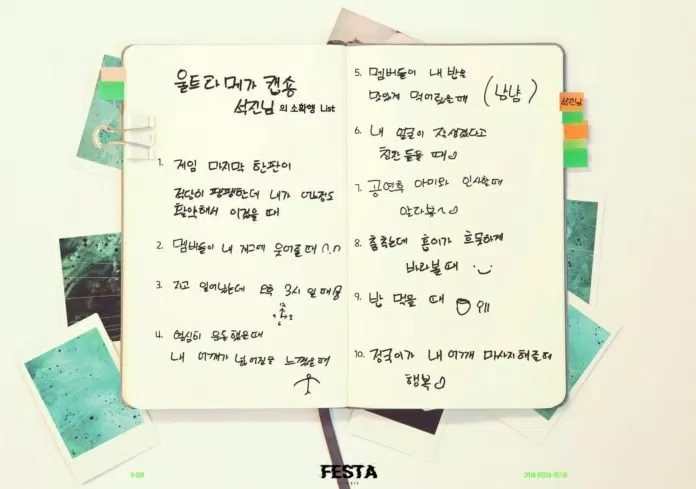 울트라 메가 캡숑
석진님의 소확행 List
1. 게임 마지막 한판이
적당히 팽팽한데 내가 어느정도
활약해서 이겼을 때
2. 멤버들이 내 개그에 웃어줄 때 ∩.∩
3. 자고 일어났는데 오후 3시 일 때
12
9 3
6
4. 열심히 운동 했을때
내 어깨가 넓어짐을 느꼈을 때
5. 멤버들이 내 밥을
맛있게 먹어줬을 때 (냠냠)
6. 내 얼굴이 잘생겼다고
칭찬 들을 때
7. 공연후 아미와 인사할 때
알라뷰~
8. 춤추는데 흥이가 흐뭇하게
바라볼 때
9. 밥 먹을 때
10. 정국이가 내 어깨 마사지 해줄 때
행복
석진님
FESTA